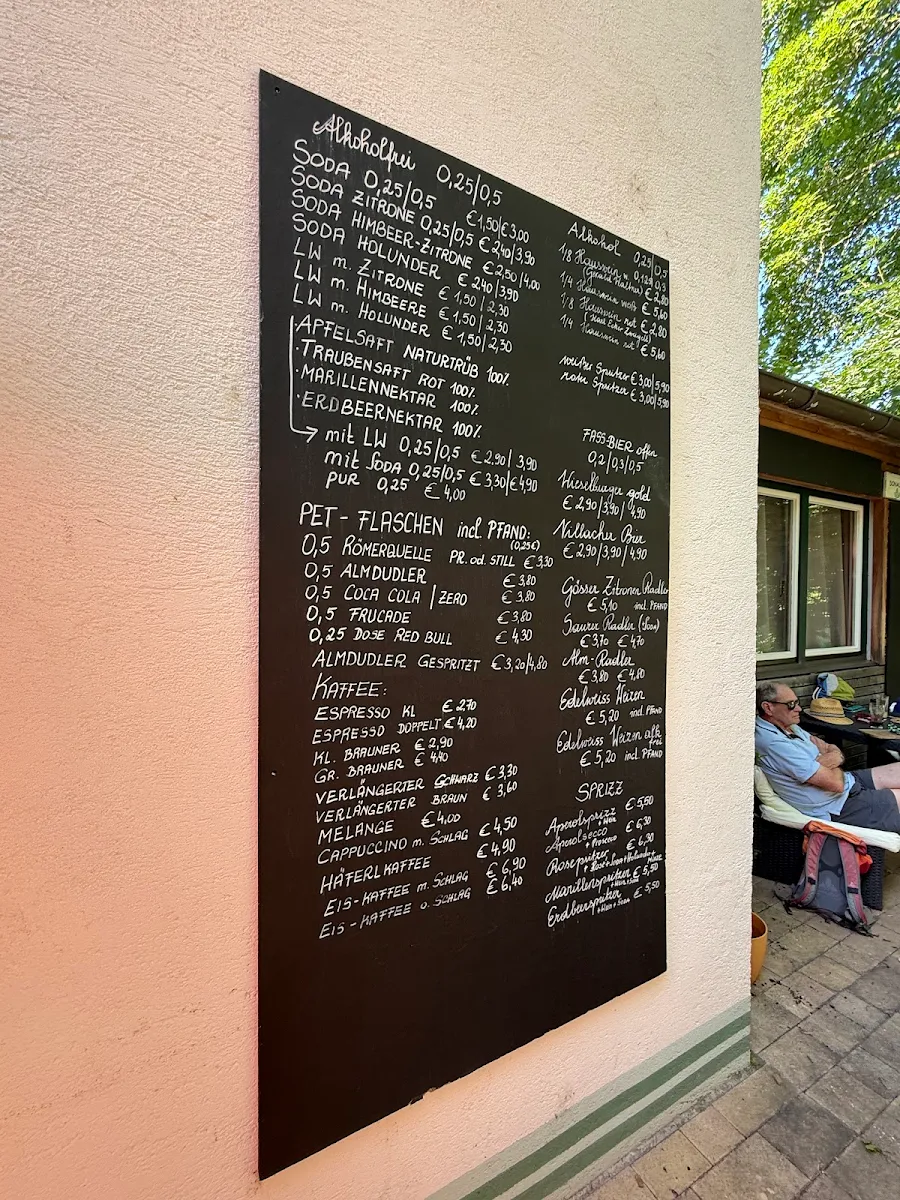 Alkoholfrei 0,25/0,5
SODA 0,25/0,5 €1,50/€3,00
SODA ZITRONE 0,25/0,5 €2,40/3,90
SODA HIMBEER-ZITRONE €2,50/4,00
SODA HOLUNDER €2,40/3,90
LW m. ZITRONE €1,50/2,30
LW m. HIMBEERE €1,50/2,30
LW m. HOLUNDER €1,50/2,30
·APFELSAFT NATURTRÜB 100%
·TRAUBENSAFT ROT 100%
·MARILLENNEKTAR 100%
·ERDBEERNEKTAR 100%
mit LW 0,25/0,5 €2.90/3,90
mit SODA 0,25/0,5 €3,30/€4,90
PUR 0,25 €4,00
PET-FLASCHEN incl. PFAND:
(0,25€)
0,5 RÖMERQUELLE PR. od. STILL €3,30
0,5 ALMDUDLER €3,80
0,5 COCA COLA/ZERO €3,80
0,5 FRUCADE €3,80
0,25 DOSE RED BULL €4,30
ALMDUDLER GESPRITZT €3,20/4,80
KAFFEE:
ESPRESSO KL €2,70
ESPRESSO DOPPELT €4,20
KL. BRAUNER €2,90
GR. BRAUNER €4,40
VERLÄNGERTER SCHWARZ €3,30
VERLÄNGERTER BRAUN €3,60
MELANGE €4,00
CAPPUCCINO m. SCHLAG €4,50
HÄFERLKAFFEE €4,90
EIS-KAFFEE m. SCHLAG €6,90
EIS-KAFFEE o. SCHLAG €6,40
Alkohol 0,25/0,5
1/8 Hauswein w. €2,80
1/4 Hauswein weiß €5,60
1/8 Hauswein rot €2,80
1/4 Hauswein rot €5,60
weißer Spritzer €3,00/5,90
roter Spritzer €3,00/5,90
FASS-BIER offen
0,2/0,3/0,5
Hieselburger gold
€2,90/3,90/4,90
Villacher Bier
€2.90/3,90/4,90
Gösser Zitronen Radler
€5,10 incl. PFAND
Saurer Radler (Soda)
€3,70 €4,70
Alm-Radler
€3,80 €4,80
Edelweiss Weizen
€5,20 incl. PFAND
Edelweiss Weizen alk frei
€5,20 incl. PFAND
SPRIZZ
Aperolsprizz €5,50
+ Wein
Aperolsecco €6,30
+ Prosecco
Rosepritzer €6,30
+ Rosé + Soda + Holunder +
Marillenspritzer €5,50
+ Wein + Soda
Erdbeerspritzer €5,50
+ Wein + Soda